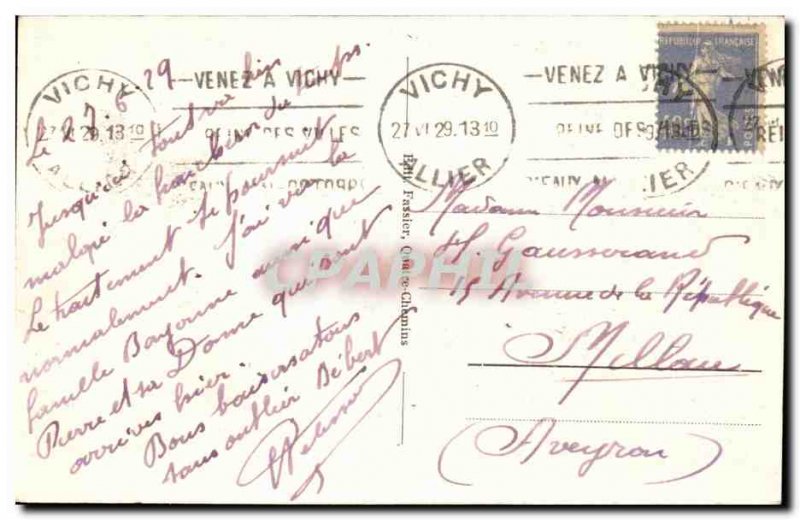 Le 27-6-29
Jusqu'ici tout va bien
malgré la hauteur du
Le traitement se poursuit
normalement. J'ai vu la
famille Bayonne ainsi que
Pierre et sa Dame qui sont
arrivés hier.
Bons baisers à tous
sans oublier
VICHY
27 VI 29.13 10
ALLIER
VENEZ A VICHY
REINE DES VILLES
D'EAUX
VICHY
27 VI 29.13 10
ALLIER
VENEZ A VICHY
REINE DES
D'EAUX
REPUBLIQUE FRANÇAISE
Edit. Fassier, Quatre-Chemins
CPAPHIL
Madame Monsieur
H. Gausserand
15 Avenue de la République
Millau
(Aveyron)